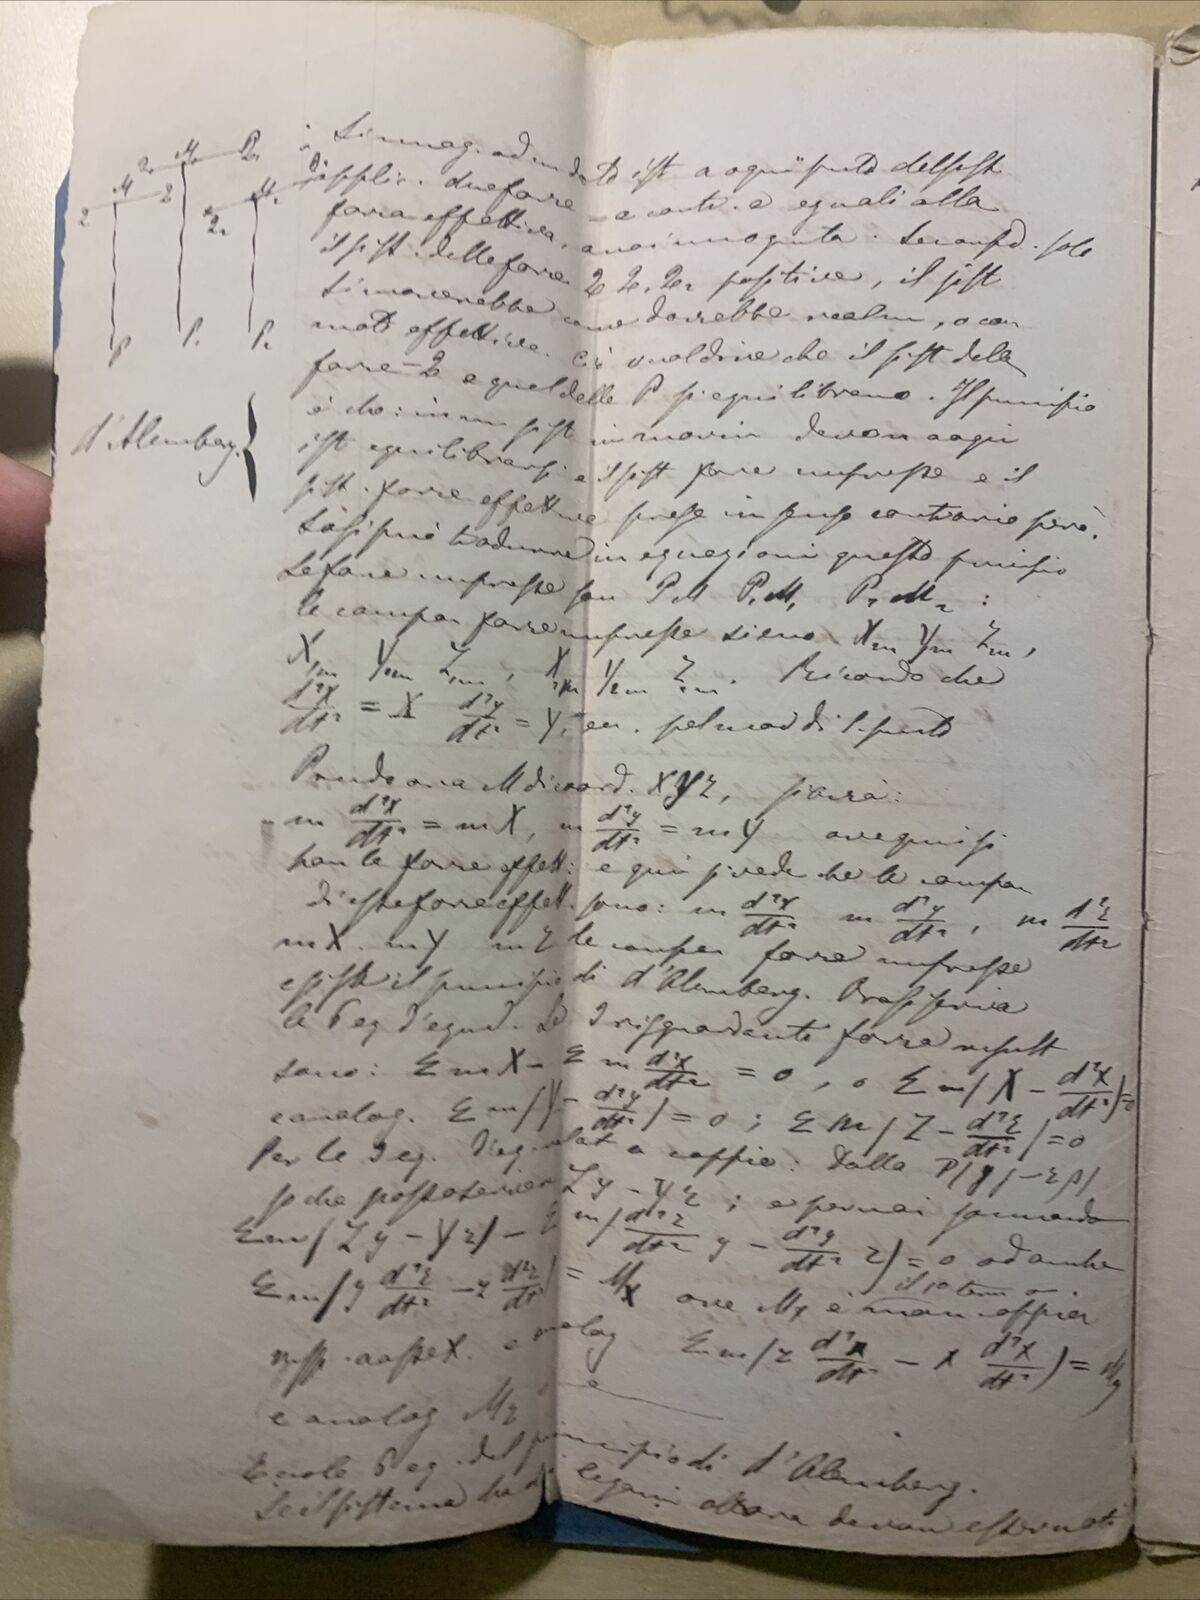 S'immag. ad un dato ist a ogni punto del sist
applic. due forze = e contr. e eguali alla
forza effettiva, anzi incognita. Secondo. solo
il sist. delle forze Q Q, Q₂ positive, il sist
si moverebbe come dovrebbe realm, o con
moto effettivo. Ciò vuol dire che il sist delle
forze -Q e quel delle P si equilibrano. Il principio
d'Alemberg.
è che: in un sist in movim devon a ogni
ist equilibrarsi e il sist forze impresse e il
sist. forze effettive prese in senso contrario però.
Così si può tradurre in equazioni questo principio
Le forze impresse son PM P,M, P₂M₂:
le compon forze impresse sieno Xm Ym Zm,
X₁m Y₁m Z₁m, X₂m Y₂m Z₂m. Ricordo che
d²x/dt² = X d²y/dt² = Y, ecc. pel moto di 1 punto
Prendo ora M di coord. XYZ, sarà:
m d²x/dt² = mX, m d²y/dt² = mY ove qui si
han le forze effett: e qui si vede che le compon
di este forze effett. sono: m d²x/dt² m d²y/dt², m d²z/dt²
mX. mY mZ le compon forze impresse
esiste il principio di d'Alemberg. Ora si scriva
le 6 eq d'equil. Le 3 risguardanti forza result
sono: Σ m X - Σ m d²x/dt² = 0, o Σ m(X - d²x/dt²)=0
e analog. Σ m(Y - d²y/dt²) = 0; Σ m(Z - d²z/dt²)=0
Per le 3 eq. d'eq. relat a coppie: dalla
so che posso scriver Zy - Yz; e perciò sommando
Σm(Zy - Yz) - Σ m(d²z/dt² y - d²y/dt² z) = 0 od anche
Σ m(y d²z/dt² - z d²z/dt²) = Mx ove Mx è il 1º term o mom. coppia
risp. a asse X. e analog Σ m(z d²x/dt² - x d²x/dt²) = My
e analog Mz
Ecco le 6 eq. del principio di d'Alemberg.
Se il sistema ha dei legami allora devon essere noti